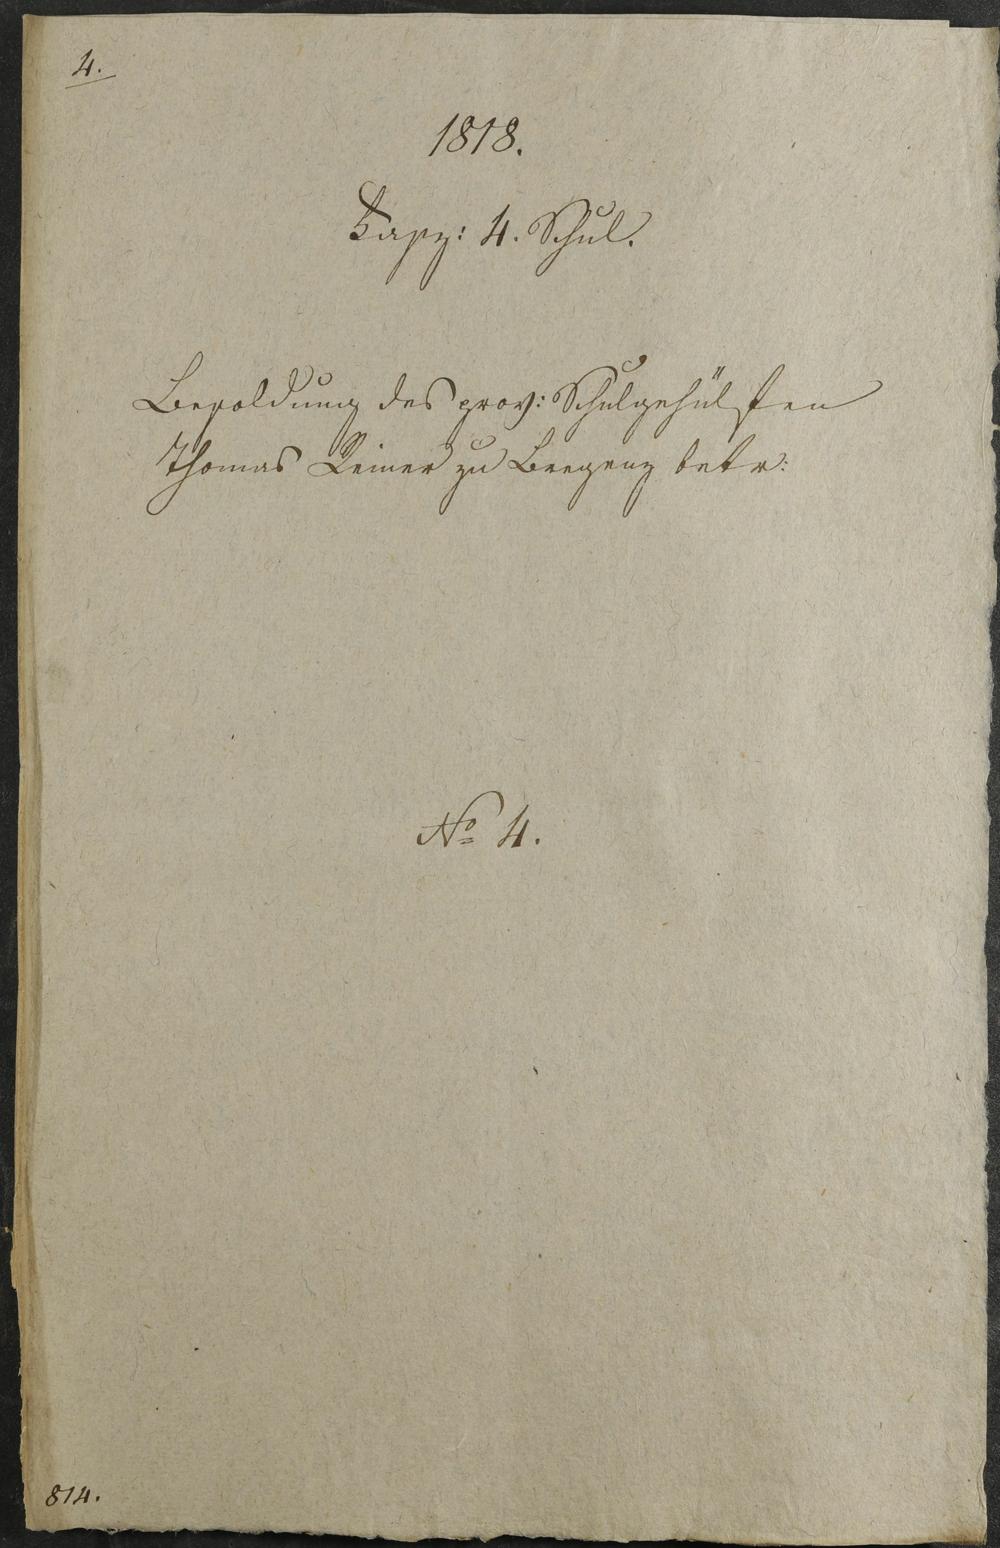 4.
1818.
Fasz: 4. Schul.
Besoldung des prov: Schulgehülfen
Thomas Reiner zu Bregenz betr:
No 4.
814.